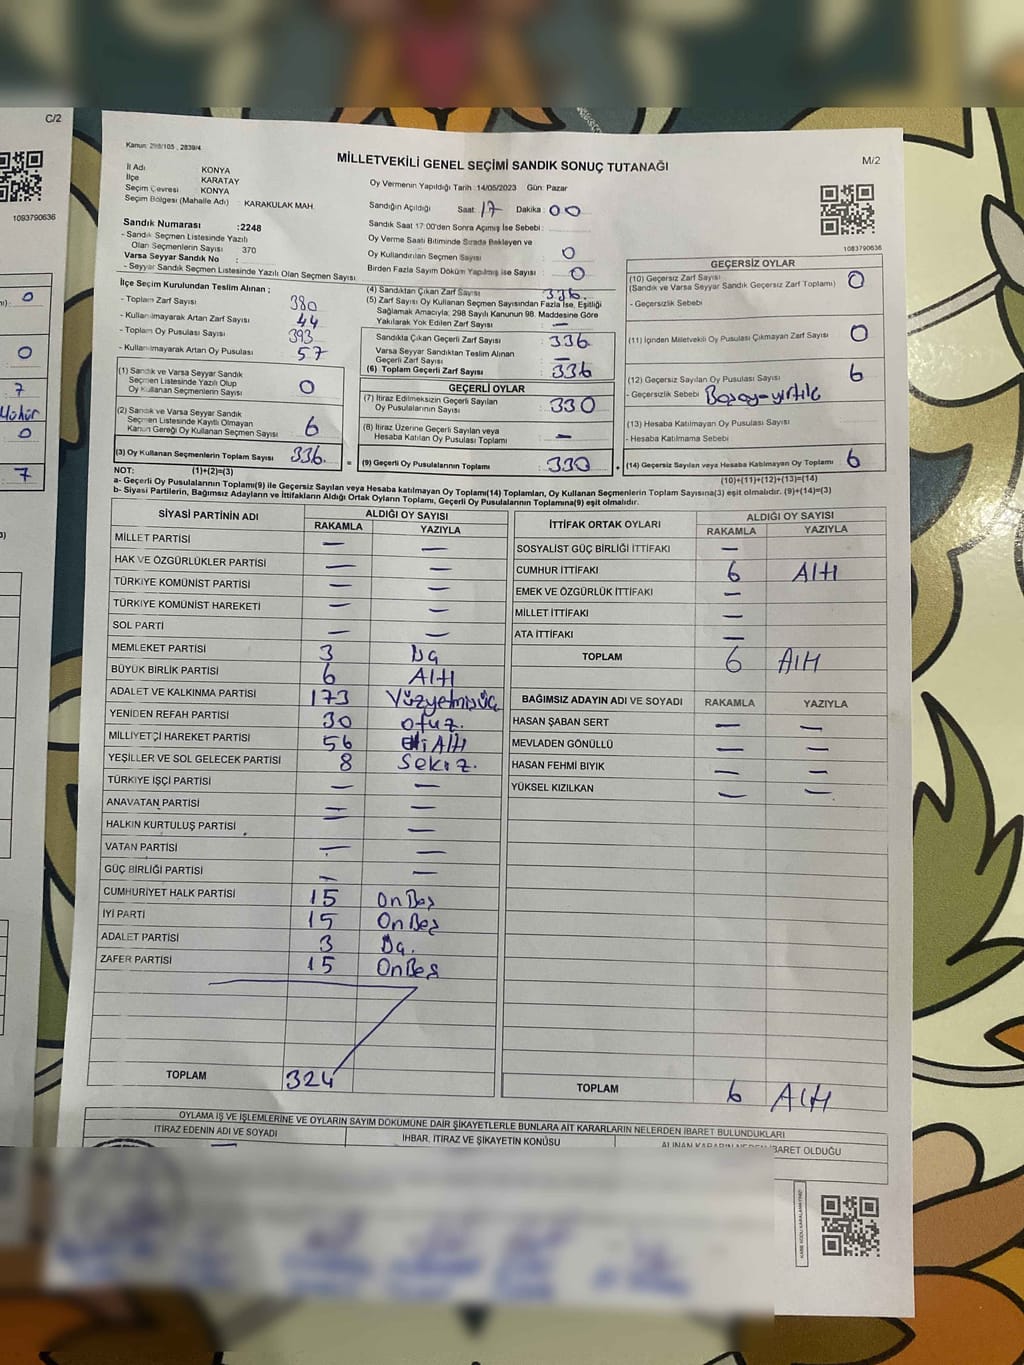 C/2
1093790636
Kanun: 298/105 , 2839/4
MİLLETVEKİLİ GENEL SEÇİMİ SANDIK SONUÇ TUTANAĞI
M/2
İl Adı KONYA
İlçe KARATAY
Seçim Çevresi KONYA
Seçim Bölgesi (Mahalle Adı) KARAKULAK MAH.
Oy Vermenin Yapıldığı Tarih :14/05/2023 Gün: Pazar
Sandığın Açıldığı Saat: 17 Dakika : 00
Sandık Saat 17:00'den Sonra Açımış İse Sebebi :
Oy Verme Saati Bitiminde Sırada Bekleyen ve
Oy Kullandırılan Seçmen Sayısı 0
Birden Fazla Sayım Döküm Yapılmış ise Sayısı 0
1083790636
Sandık Numarası :2248
- Sandık Seçmen Listesinde Yazılı
Olan Seçmenlerin Sayısı 370
Varsa Seyyar Sandık No :
- Seyyar Sandık Seçmen Listesinde Yazılı Olan Seçmen Sayısı:
İlçe Seçim Kurulundan Teslim Alınan ;
- Toplam Zarf Sayısı 380
- Kullanılmayarak Artan Zarf Sayısı 44
- Toplam Oy Pusulası Sayısı 393
- Kullanılmayarak Artan Oy Pusulası 57
(1) Sandık ve Varsa Seyyar Sandık
Seçmen Listesinde Yazılı Olup
Oy Kullanan Seçmenlerin Sayısı 0
(2) Sandık ve Varsa Seyyar Sandık
Seçmen Listesinde Kayıtlı Olmayan
Kanun Gereği Oy Kullanan Seçmen Sayısı 6
(3) Oy Kullanan Seçmenlerin Toplam Sayısı 336.
(4) Sandıktan Çıkan Zarf Sayısı 336.
(5) Zarf Sayısı Oy Kullanan Seçmen Sayısından Fazla İse, Eşitliği
Sağlamak Amacıyla; 298 Sayılı Kanunun 98. Maddesine Göre
Yakılarak Yok Edilen Zarf Sayısı —
Sandıkta Çıkan Geçerli Zarf Sayısı 336
Varsa Seyyar Sandıktan Teslim Alınan
Geçerli Zarf Sayısı —
(6) Toplam Geçerli Zarf Sayısı 336
GEÇERLİ OYLAR
(7) İtiraz Edilmeksizin Geçerli Sayılan
Oy Pusulalarının Sayısı 330
(8) İtiraz Üzerine Geçerli Sayılan veya
Hesaba Katılan Oy Pusulası Toplamı —
(9) Geçerli Oy Pusulalarının Toplamı : 330
GEÇERSİZ OYLAR
(10) Geçersiz Zarf Sayısı 0
(Sandık ve Varsa Seyyar Sandık Geçersiz Zarf Toplamı) :
- Geçersizlik Sebebi
(11) İçinden Milletvekili Oy Pusulası Çıkmayan Zarf Sayısı 0
(12) Geçersiz Sayılan Oy Pusulası Sayısı 6
- Geçersizlik Sebebi
(13) Hesaba Katılmayan Oy Pusulası Sayısı
- Hesaba Katılmama Sebebi
(14) Geçersiz Sayılan veya Hesaba Katılmayan Oy Toplamı 6
NOT: (1)+(2)=(3)
(10)+(11)+(12)+(13)=(14)
a- Geçerli Oy Pusulalarının Toplamı(9) ile Geçersiz Sayılan veya Hesaba katılmayan Oy Toplamı(14) Toplamları, Oy Kullanan Seçmenlerin Toplam Sayısına(3) eşit olmalıdır. (9)+(14)=(3)
b- Siyasi Partilerin, Bağımsız Adayların ve İttifakların Aldığı Ortak Oyların Toplamı, Geçerli Oy Pusulalarının Toplamına(9) eşit olmalıdır.
SİYASİ PARTİNİN ADI ALDIĞI OY SAYISI
RAKAMLA YAZIYLA
MİLLET PARTİSİ — —
HAK VE ÖZGÜRLÜKLER PARTİSİ — —
TÜRKİYE KOMÜNİST PARTİSİ — —
TÜRKİYE KOMÜNİST HAREKETİ — —
SOL PARTİ — —
MEMLEKET PARTİSİ 3
BÜYÜK BİRLİK PARTİSİ 6 Altı
ADALET VE KALKINMA PARTİSİ 173 Yüzyetmişüç
YENİDEN REFAH PARTİSİ 30 otuz.
MİLLİYETÇİ HAREKET PARTİSİ 56 elli Altı
YEŞİLLER VE SOL GELECEK PARTİSİ 8 Sekiz.
TÜRKİYE İŞÇİ PARTİSİ — —
ANAVATAN PARTİSİ — —
HALKIN KURTULUŞ PARTİSİ — —
VATAN PARTİSİ — —
GÜÇ BİRLİĞİ PARTİSİ — —
CUMHURİYET HALK PARTİSİ 15 OnBeş
İYİ PARTİ 15 OnBeş
ADALET PARTİSİ 3
ZAFER PARTİSİ 15 OnBeş
TOPLAM 324
İTTİFAK ORTAK OYLARI ALDIĞI OY SAYISI
RAKAMLA YAZIYLA
SOSYALİST GÜÇ BİRLİĞİ İTTİFAKI —
CUMHUR İTTİFAKI 6 Altı
EMEK VE ÖZGÜRLÜK İTTİFAKI —
MİLLET İTTİFAKI —
ATA İTTİFAKI —
TOPLAM 6 Altı
BAĞIMSIZ ADAYIN ADI VE SOYADI RAKAMLA YAZIYLA
HASAN ŞABAN SERT — —
MEVLADEN GÖNÜLLÜ — —
HASAN FEHMİ BIYIK — —
YÜKSEL KIZILKAN — —
TOPLAM 6 Altı
OYLAMA İŞ VE İŞLEMLERİNE VE OYLARIN SAYIM DÖKÜMÜNE DAİR ŞİKAYETLERLE BUNLARA AİT KARARLARIN NELERDEN İBARET BULUNDUKLARI
İTİRAZ EDENİN ADI VE SOYADI İHBAR, İTİRAZ VE ŞİKAYETİN KONUSU ALINAN KARARIN NEDEN İBARET OLDUĞU